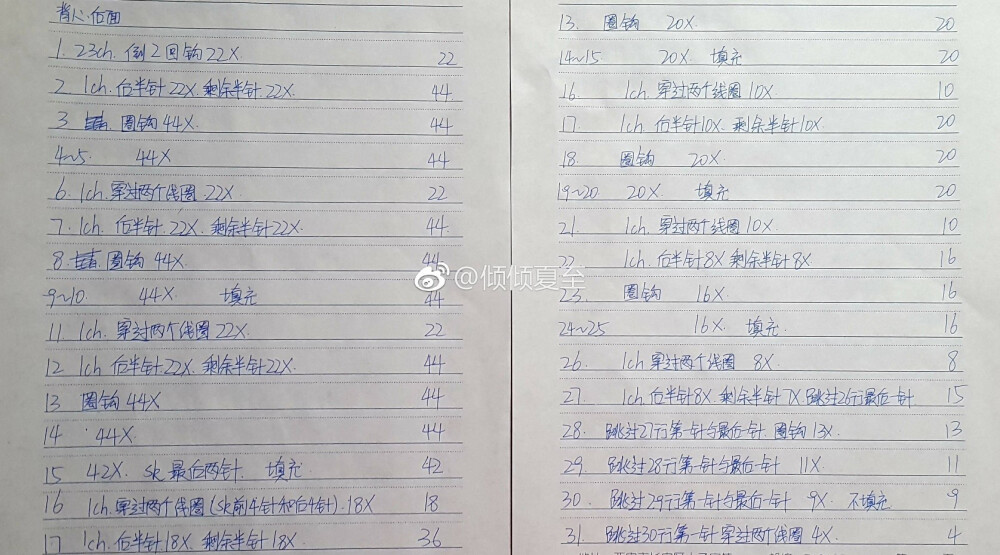 背心后面
1. 23ch. 倒2回钩22X. 22
2 1ch. 后半针22X. 剩余半针22X. 44
3 圈钩44X. 44
4~5. 44X 44
6. 1ch. 穿过两个线圈.22X. 22
7. 1ch. 后半针.22X. 剩余半针22X. 44
8. 圈钩44X. 44
9~10. 44X. 填充 44
11. 1ch. 穿过两个线圈22X. 22
12. 1ch 后半针22X. 剩余半针22X. 44
13 圈钩44X. 44
14 44X. 44
15 42X. sk最后两针. 填充. 42
16 1ch. 穿过两个线圈(sk前4针和后4针).18X 18
17 1ch. 后半针18X. 剩余半针18X. 36
13. 圈钩 20X. 20
14~15 20X. 填充 20
16 1ch. 穿过两个线圈10X. 10
17. 1ch 后半针10X. 剩余半针10X. 20
18. 圈钩 20X. 20
19~20 20X. 填充 20
21. 1ch. 穿过两个线圈10X. 10
22. 1ch. 后半针8X 剩余半针8X 16
23. 圈钩 16X. 16
24~25 16X. 填充. 16
26. 1ch 穿过两个线圈 8X. 8
27. 1ch. 后半针8X. 剩余半针7X. 跳过26行最后一针 15
28. 跳过27行第一针与最后一针. 圈钩13X. 13
29. 跳过28行第一针与最后一针 11X. 11
30. 跳过29行第一针与最后一针 9X. 不填充 9
31. 跳过30行第一针 穿过两个线圈 4X. 4
@倾倾夏至